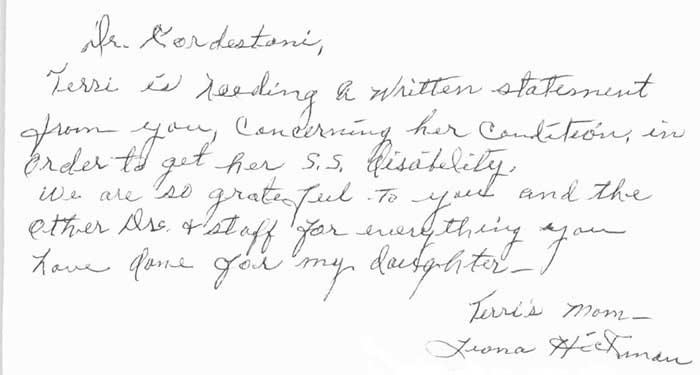 Dr. Kordestani,
Terri is needing a written statement
from you, concerning her condition, in
order to get her S.S. Disability.
We are so grateful to you and the
other Drs. & staff for everything you
have done for my daughter—
Terri's Mom—
Leona Hickman